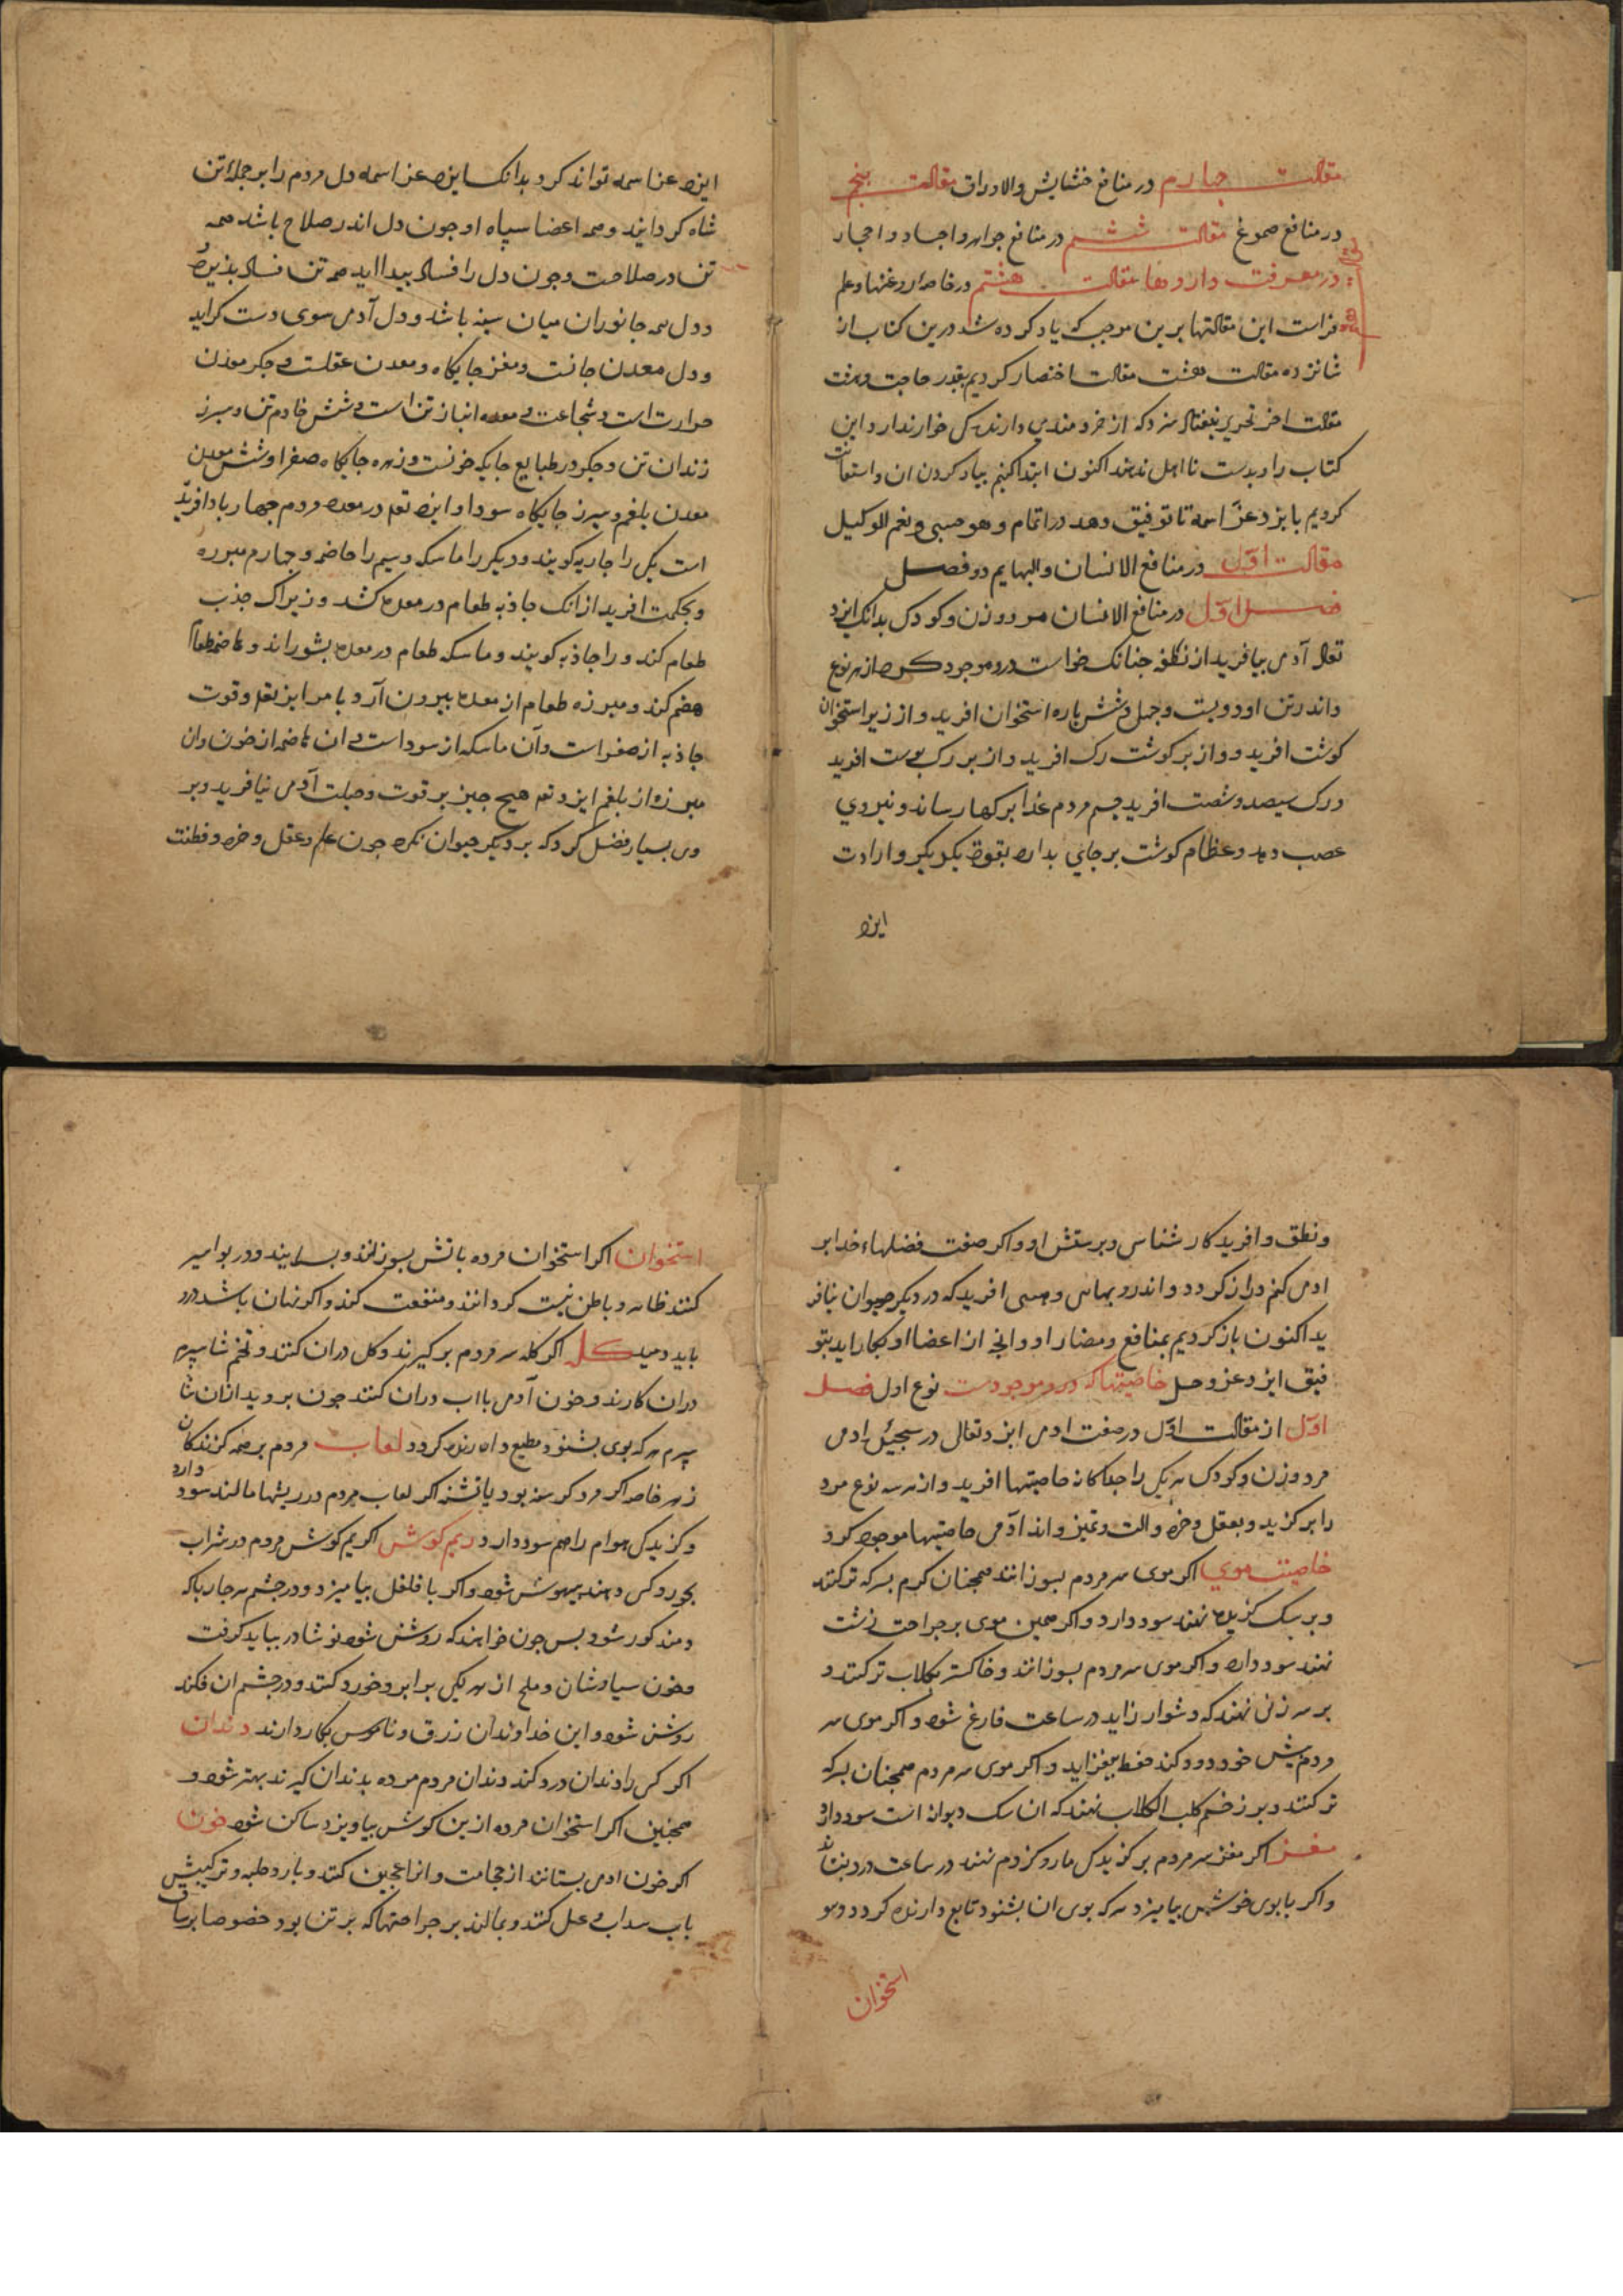 مقالت چهارم در منافع حشایش والاوراق مقالت پنجم
در منافع صموغ مقالت ششم در منافع جواهر واجساد واحجار
در معرفت داروها مقالت هشتم در خاصه روغنها وعلم
فراست این مقالتها برین موجب که یاد کرده شد درین کتاب از
شانزده مقالت هشت مقالت اختصار کردیم بقدر حاجت وهشت
مقالت اخر که از خردمندی دارند کس خوار ندارد واین
کتاب را وبدست نااهل ندهند اکنون ابتدا کنیم بیاد کردن ان واستعانت
کردیم بایزد عز اسمه تا توفیق دهد در اتمام وهو حسبی ونعم الوکیل
مقالت اول در منافع الانسان والبهایم دو فصل
فصل اول در منافع الانسان مرد وزن وکودک بدانک ایزد
تعالی آدمی بیافرید از نطفه چنانک خواست درو موجود کرد از هر نوع
واندر تن او دویست وچهل وشش پاره استخوان افرید واز زیر استخوان
کوشت افرید وواز بر کوشت رک افرید واز بر رک پوست افرید
ورک سیصد وشصت افرید جسم مردم غذا برکها رساند ونیروی
عصب دهد وعظام کوشت بر جای بدارد بقوه یکدیکر وارادت
ایزد
ایزد عز اسمه تواند کرد بدانک ایزد عز اسمه دل مردم را بر جمله تن
شاه کردانید وهمه اعضا سپاه او چون دل اندر صلاح باشد همه
تن در صلاحت وچون دل را فساد پیدا اید همه تن فساد پذیرد
ودل همه جانوران میان سینه باشد ودل آدمی سوی دست کراید
ودل معدن جانست ومغز جایکاه ومعدن عقلست وجکر معدن
حرارت است وشجاعت ومعده انباز تن است وشش خادم تن وسپرز
زندان تن وجکر در طبایع جایکه خونست وزهره جایکاه صفرا وشش معدن
معدن بلغم وسپرز جایکاه سودا وایزد تعالی در معده مردم چهار باد افریده
است یکی را جاذبه کویند ودیکر را ماسکه وسیم را هاضمه وچهارم مبرزه
وبحکمت افرید از انک جاذبه طعام در معده کشد وزیراک جذب
طعام کند ورا جاذبه کویند وماسکه طعام در معده بشوراند وهاضمه طعام
هضم کند ومبرزه طعام از معده بیرون آرد بامر ایزد تعالی وقوت
جاذبه از صفراست وآن ماسکه از سوداست وان هاضمه از خون وان
مبرزه از بلغم ایزد تعالی هیچ چیز بر قوت وجبلت آدمی نیافرید وبر
وی بسیار فضل کرد که بر دیکر حیوان نکرد چون علم وعقل وخرد وفطنت
ونطق وافریدکار شناسی وپرستش او واکر صفت فضلهاء خدا بر
ادمی کنم دراز کردد واندرو بهایی وحسی افرید که در دیکر حیوان نیافر
ید اکنون باز کردیم بمنافع ومضار او وانچه از اعضا او بکار اید بتو
فیق ایزد عز وجل خاصیتها که درو موجودست نوع اول فصل
اول از مقالت اول در صفت ادمی ایزد تعالی در ادمی
مرد وزن وکودک هر یکی را جداکانه خاصیتها افرید واز هر سه نوع مرد
را برکزید وبعقل وخرد والت وتمیز واندر آدمی خاصیتها موجود کرد
خاصیت موی اکر موی سر مردم بسوزانند همچنان کرم بسرکه تر کنند
وبر سک کزیده نهند سود دارد واکر همین موی بر جراحت زشت
نهند سود دارد واکر موی سر مردم بسوزانند وخاکستر بکلاب تر کنند و
بر سر زنی نهند که دشوار زاید در ساعت فارغ شود واکر موی سر
مردم پیش خود دود کند حفظ بیفزاید واکر موی سر مردم همچنان بسرکه
تر کنند وبر زخم کلب الکلاب نهند که ان سک دیوانه است سود دارد
مغز اکر مغز سر مردم بر کزیدکی مار وکژدم نهند در ساعت درد بنشاند
واکر با بوی خوش بیامیزد هر که بوی ان بشنود تابع دارنده کردد وهو
استخوان
استخوان اکر استخوان مرده باتش بسوزانند وبسایند ودر بواسیر
کنند ظاهر وباطن نیست کرداند ومنفعت کند واکر نهان باشد درد
باید دمید کله اکر کله سر مردم برکیرند وکل دران کنند وتخم شاسپرم
دران کارند وخون آدمی بااب دران کنند چون بروید ازان شا
سپرم هر که بوی بشنود مطیع دارنده کردد لعاب مردم بر همه کزندکان
زهر خاصه اکر مرد کرسنه بود یا تشنه اکر لعاب مردم در ریشها مالند سود دارد
وکزیدکی هوام را هم سود دارد ریم کوش اکر ریم کوش مردم در شراب
بخورد کسی دهند بیهوش شود واکر با فلفل بیامیزد ودر چشم هر چارپا که
دمند کور شود پس چون خواهند که روشن شود نوشادر بباید کرفت
وخون سیاوشان وملح از هر یکی برابر وخورد کنند ودر چشم ان فکند
روشن شود واین خداوندان زرق وناموس بکار دارند دندان
اکر کسی را دندان درد کند دندان مردم مرده بدندان کیرند بهتر شود و
همچنین اکر استخوان مرده از بن کوش بیاویزد ساکن شود خون
اکر خون ادمی بستانند از حجامت وانرا عجین کنند وترکیبش
باب سداب وعسل کنند وبمالند بر جراحتها که بر تن بود خصوصا بر ساق